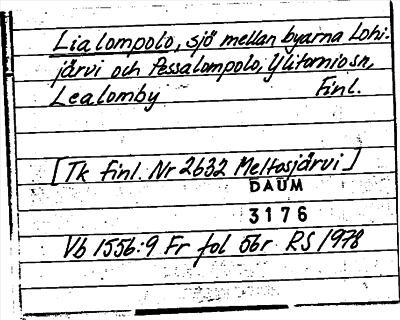 Lialompolo, sjö mellan byarna Lohi-
järvi och Pessalompolo, Ylitorniosn,
Lealomby Finl.
[Tk finl. Nr 2632 Meltosjärvi]
DAUM
3176
Vb 1556:9 Fr fol 56r RS 1978